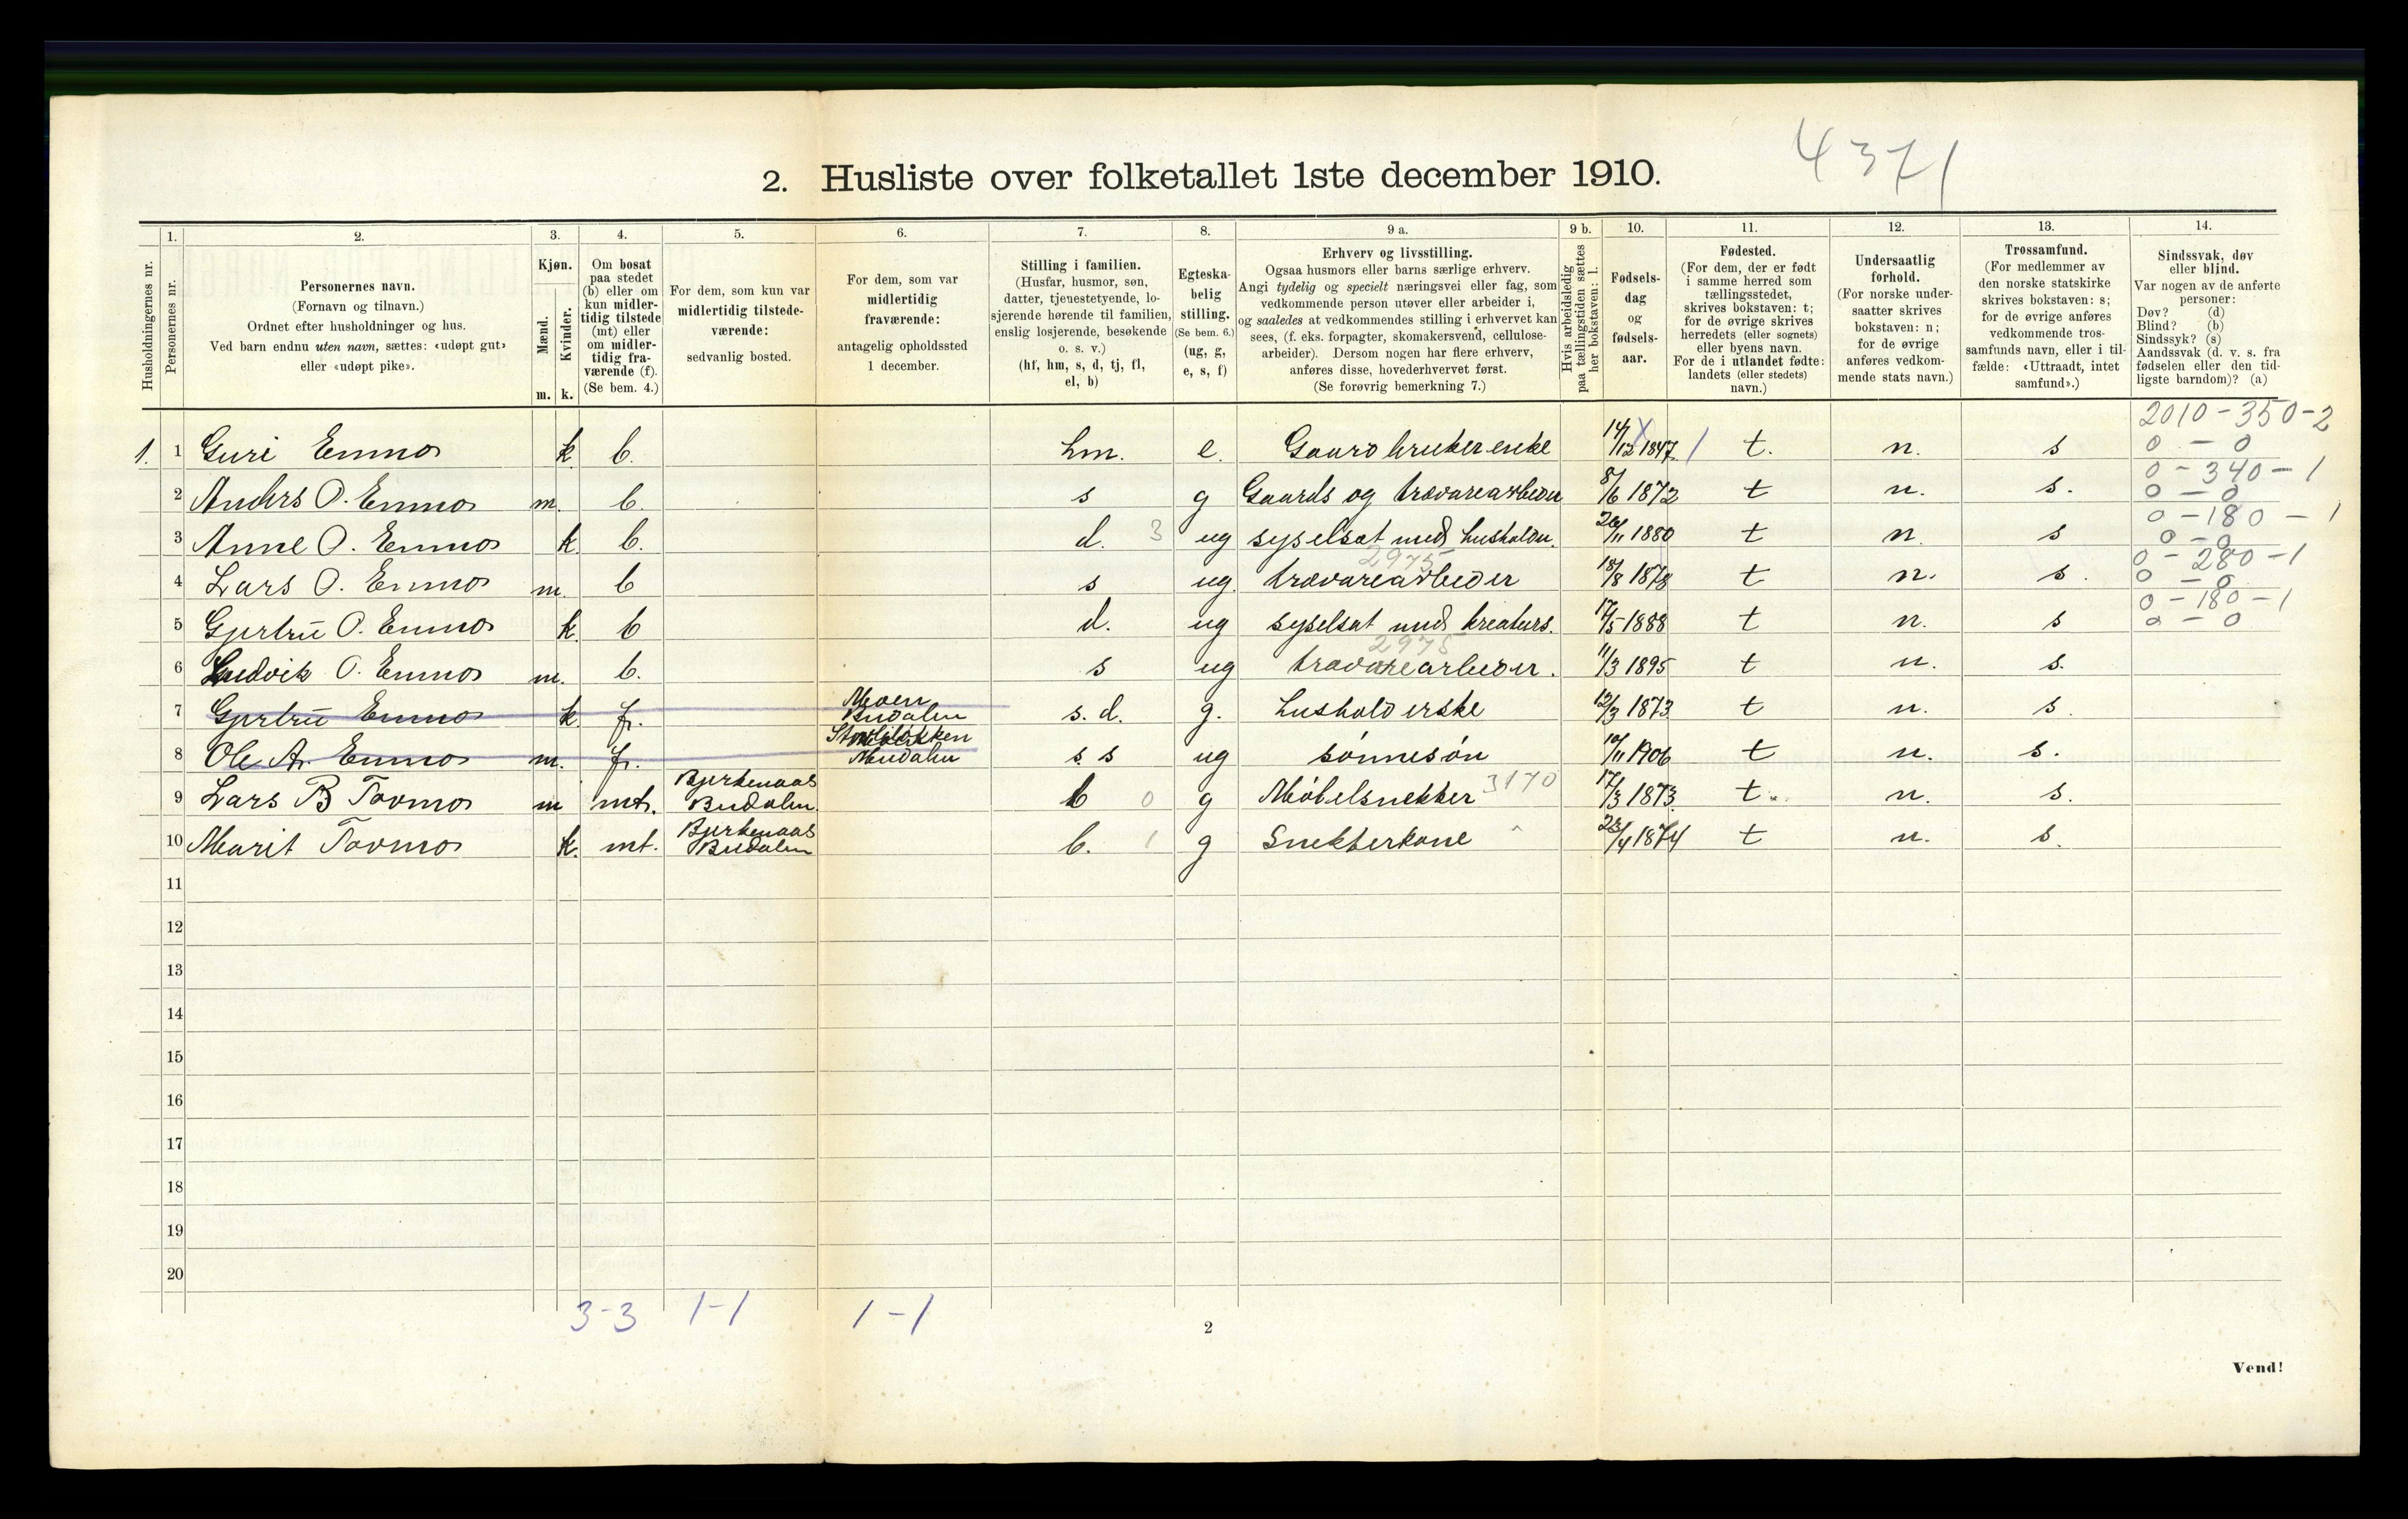 4371
2. Husliste over folketallet 1ste december 1910.
Husholdningernes nr.
1.
Personernes nr.
2.
Personernes navn.
(Fornavn og tilnavn.)
Ordnet efter husholdninger og hus.
Ved barn endnu uten navn, sættes: «udøpt gut»
eller «udøpt pike».
3.
Kjøn.
Mænd.
Kvinder.
m. k.
4.
Om bosat
paa stedet
(b) eller om
kun midler-
tidig tilstede
(mt) eller
om midler-
tidig fra-
værende (f).
(Se bem. 4.)
5.
For dem, som kun var
midlertidig tilstede-
værende:
sedvanlig bosted.
6.
For dem, som var
midlertidig
fraværende:
antagelig opholdssted
1 december.
7.
Stilling i familien.
(Husfar, husmor, søn,
datter, tjenestetyende, lo-
sjerende hørende til familien,
enslig losjerende, besøkende
o. s. v.)
(hf, hm, s, d, tj, fl,
el, b)
8.
Egteska-
belig
stilling.
(Se bem. 6.)
(ug, g,
e, s, f)
9 a.
Erhverv og livsstilling.
Ogsaa husmors eller barns særlige erhverv.
Angi tydelig og specielt næringsvei eller fag, som
vedkommende person utøver eller arbeider i,
og saaledes at vedkommendes stilling i erhvervet kan
sees, (f. eks. forpagter, skomakersvend, cellulose-
arbeider). Dersom nogen har flere erhverv,
anføres disse, hovederhvervet først.
(Se forøvrig bemerkning 7.)
9 b.
Hvis arbeidsledig
paa tællingstiden sættes
her bokstaven: l.
10.
Fødsels-
dag
og
fødsels-
aar.
11.
Fødested.
(For dem, der er født
i samme herred som
tællingsstedet,
skrives bokstaven: t;
for de øvrige skrives
herredets (eller sognets)
eller byens navn.
For de i utlandet fødte:
landets (eller stedets)
navn.)
12.
Undersaatlig
forhold.
(For norske under-
saatter skrives
bokstaven: n;
for de øvrige
anføres vedkom-
mende stats navn.)
13.
Trossamfund.
(For medlemmer av
den norske statskirke
skrives bokstaven: s;
for de øvrige anføres
vedkommende tros-
samfunds navn, eller i til-
fælde: «Uttraadt, intet
samfund».)
14.
Sindssvak, døv
eller blind.
Var nogen av de anførte
personer:
Døv? (d)
Blind? (b)
Sindssyk? (s)
Aandssvak (d. v. s. fra
fødselen eller den tid-
ligste barndom)? (a)
2010-350-2
1. 1 Guri Enmo k b. hm. e. Gaardbrukerenke 14/12 1847 t. n. s 0 - 0
0 - 340 - 1
2 Anders O. Enmo m. b. s g Gaards og trævarearbeider 8/6 1872 t n. s. 0 - 0
0 - 180 - 1
3 Anne O. Enmo k b. d. 3 ug syselsat med husholdn. 26/11 1880 t n. s 0 - 0
2975 0 - 280 - 1
4 Lars O. Enmo m. b s ug. trævarearbeider 18/8 1878 t n. s. 0 - 0
0 - 180 - 1
5 Gjertru O. Enmo k. b d. ug syselsat med kreaturs. 17/5 1888 t n. s 0 - 0
2975
6 Ludvik O. Enmo m. b. s ug trævarearbeider. 11/3 1895 t n. s.
7 Gjertru Enmo k fr. Moen Budalen s. d. g. husholderske 12/3 1873 t n. s.
8 Ole A. Enmo m. fr. Budalen s. s ug sønnesøn 10/11 1906 t n. s.
9 Lars B Tovmo m mt. Bjerkenaas Budalen. b 0 g Møbelsnekker 3170 17/3 1873 t n. s.
10 Marit Tovmo k. mt. Bjerkenaas Budalen b. 1 g Snekkerkone 23/4 1874 t n. s.
11
12
13
14
15
16
17
18
19
20
3-3 1-1 1-1
2
Vend!